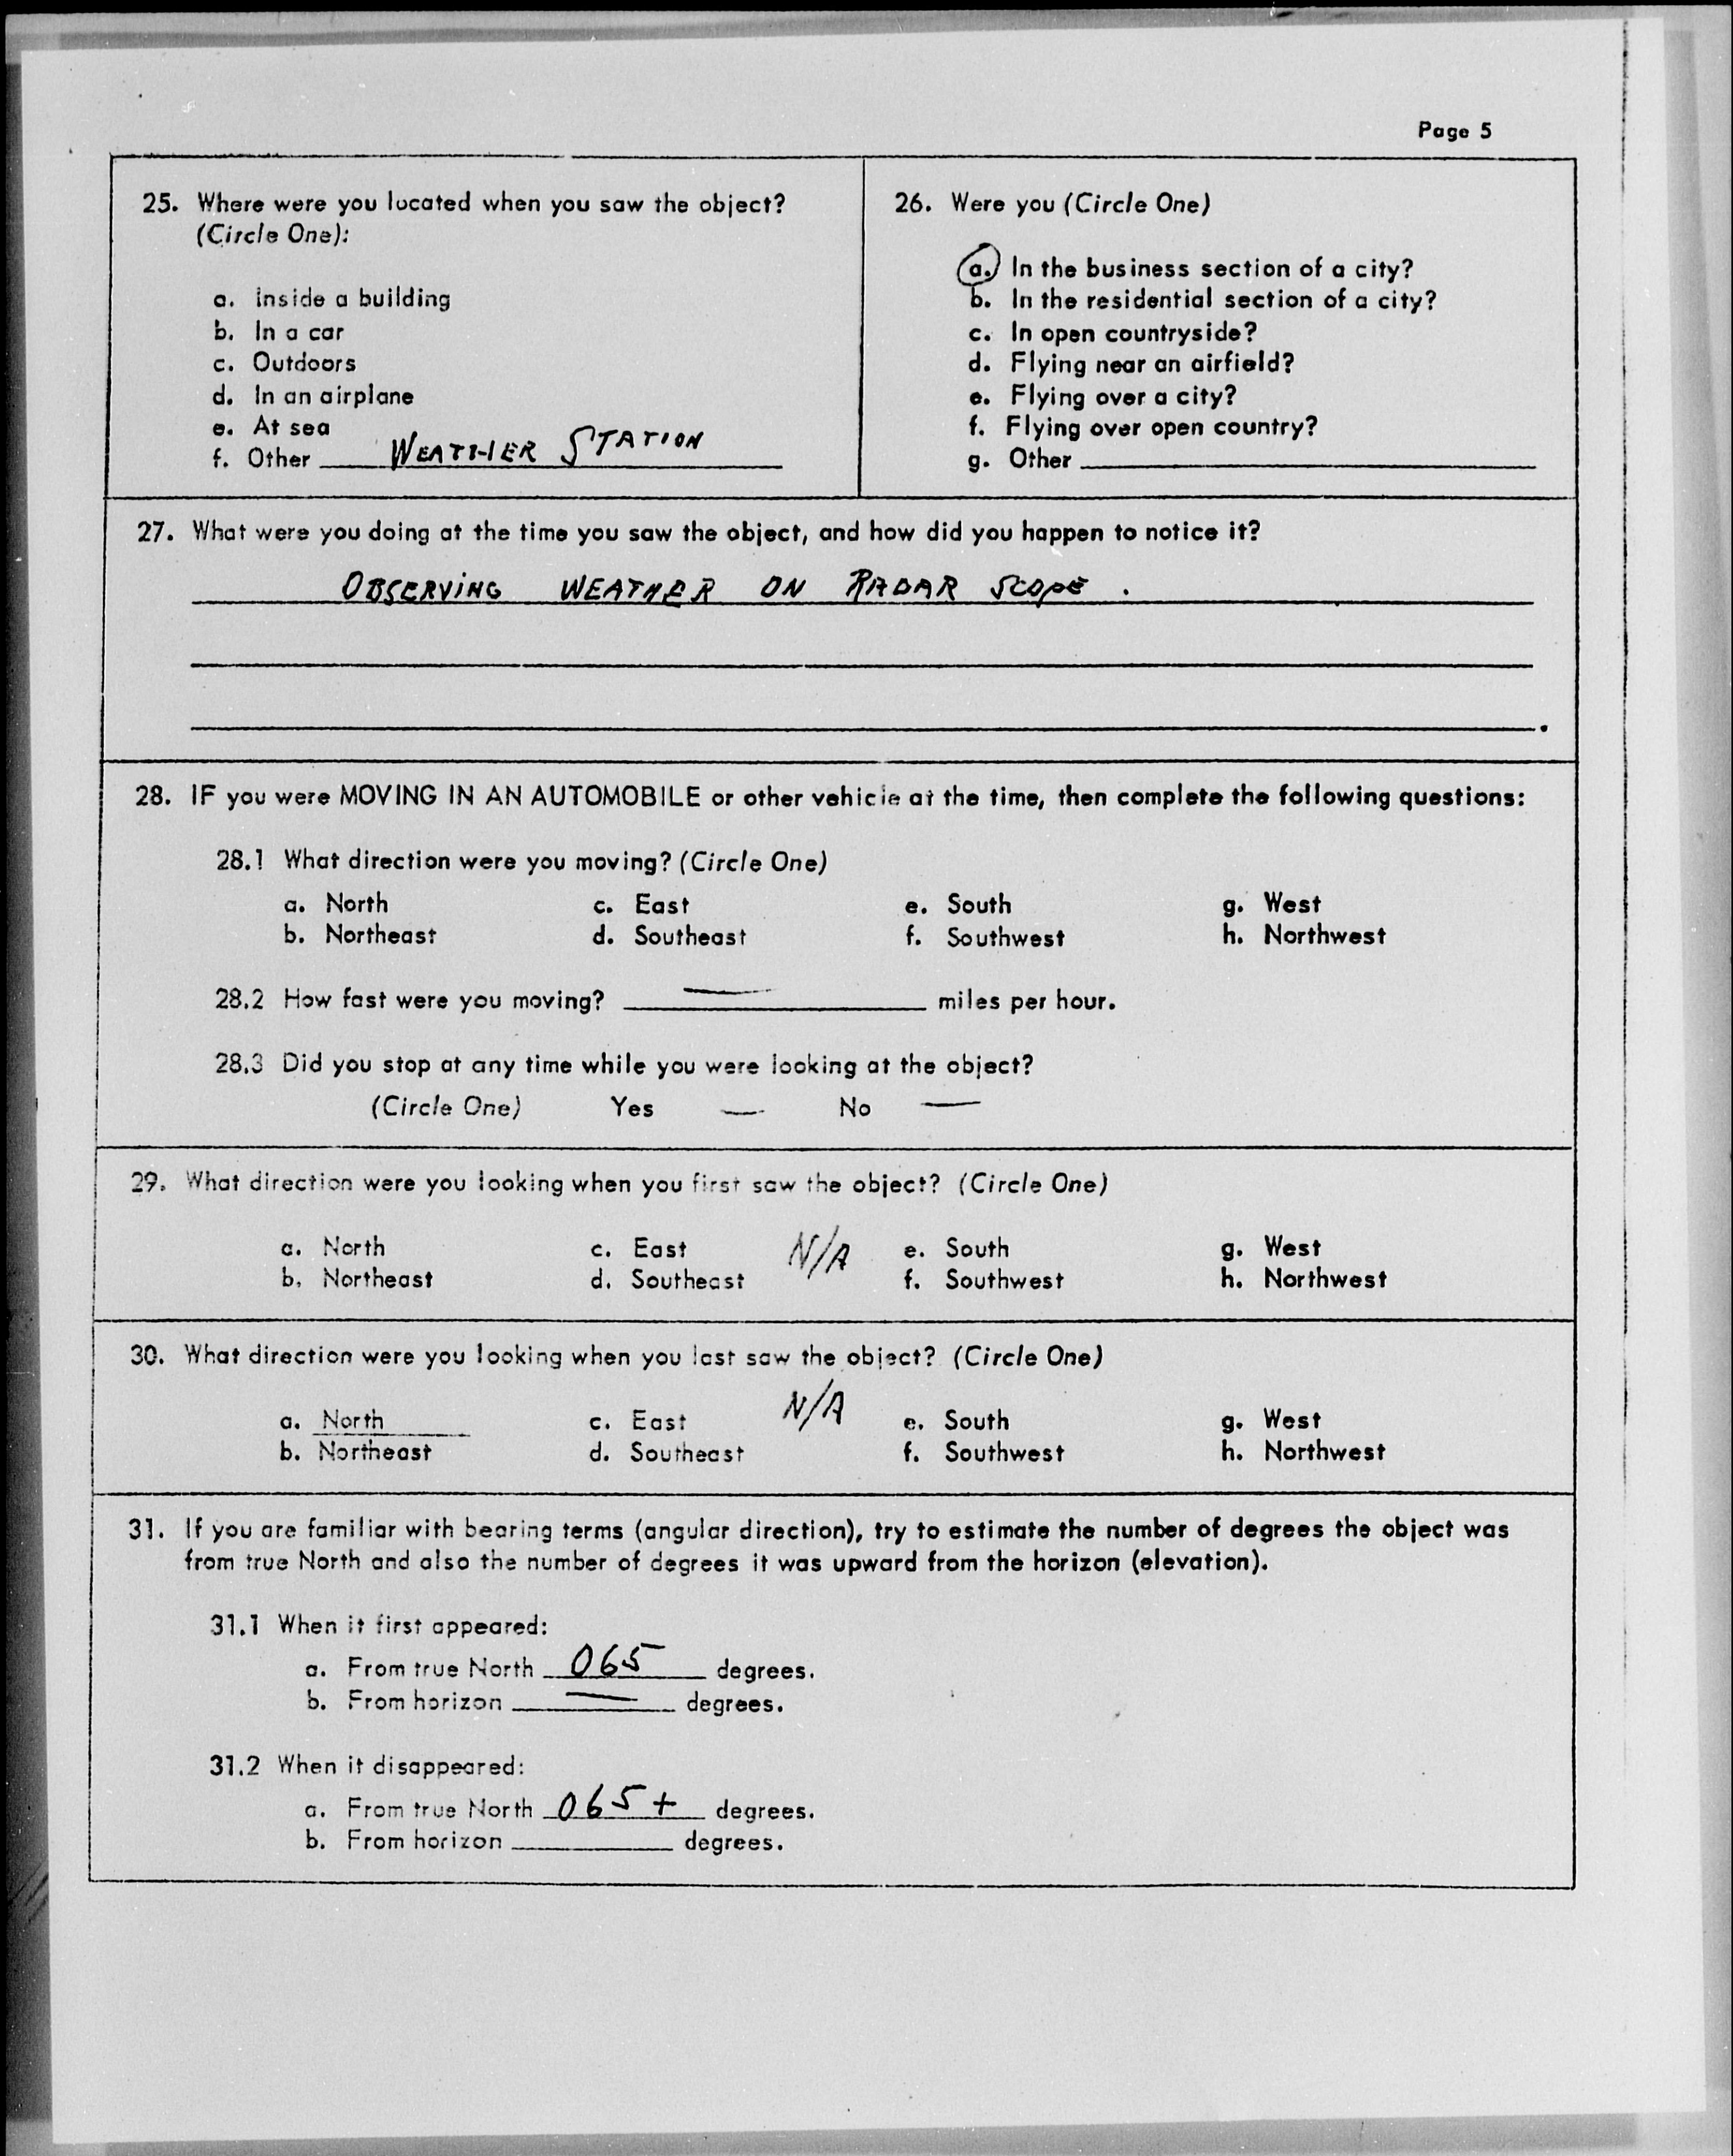 Page 5
25. Where were you located when you saw the object?
(Circle One):
a. Inside a building
b. In a car
c. Outdoors
d. In an airplane
e. At sea
f. Other WEATHER STATION
26. Were you (Circle One)
a. In the business section of a city?
b. In the residential section of a city?
c. In open countryside?
d. Flying near an airfield?
e. Flying over a city?
f. Flying over open country?
g. Other
27. What were you doing at the time you saw the object, and how did you happen to notice it?
OBSERVING WEATHER ON RADAR SCOPE.
28. IF you were MOVING IN AN AUTOMOBILE or other vehicle at the time, then complete the following questions:
28.1 What direction were you moving? (Circle One)
a. North c. East e. South g. West
b. Northeast d. Southeast f. Southwest h. Northwest
28.2 How fast were you moving? — miles per hour.
28.3 Did you stop at any time while you were looking at the object?
(Circle One) Yes — No —
29. What direction were you looking when you first saw the object? (Circle One)
a. North c. East N/A e. South g. West
b. Northeast d. Southeast f. Southwest h. Northwest
30. What direction were you looking when you last saw the object? (Circle One)
a. North c. East N/A e. South g. West
b. Northeast d. Southeast f. Southwest h. Northwest
31. If you are familiar with bearing terms (angular direction), try to estimate the number of degrees the object was
from true North and also the number of degrees it was upward from the horizon (elevation).
31.1 When it first appeared:
a. From true North 065 degrees.
b. From horizon — degrees.
31.2 When it disappeared:
a. From true North 065+ degrees.
b. From horizon degrees.